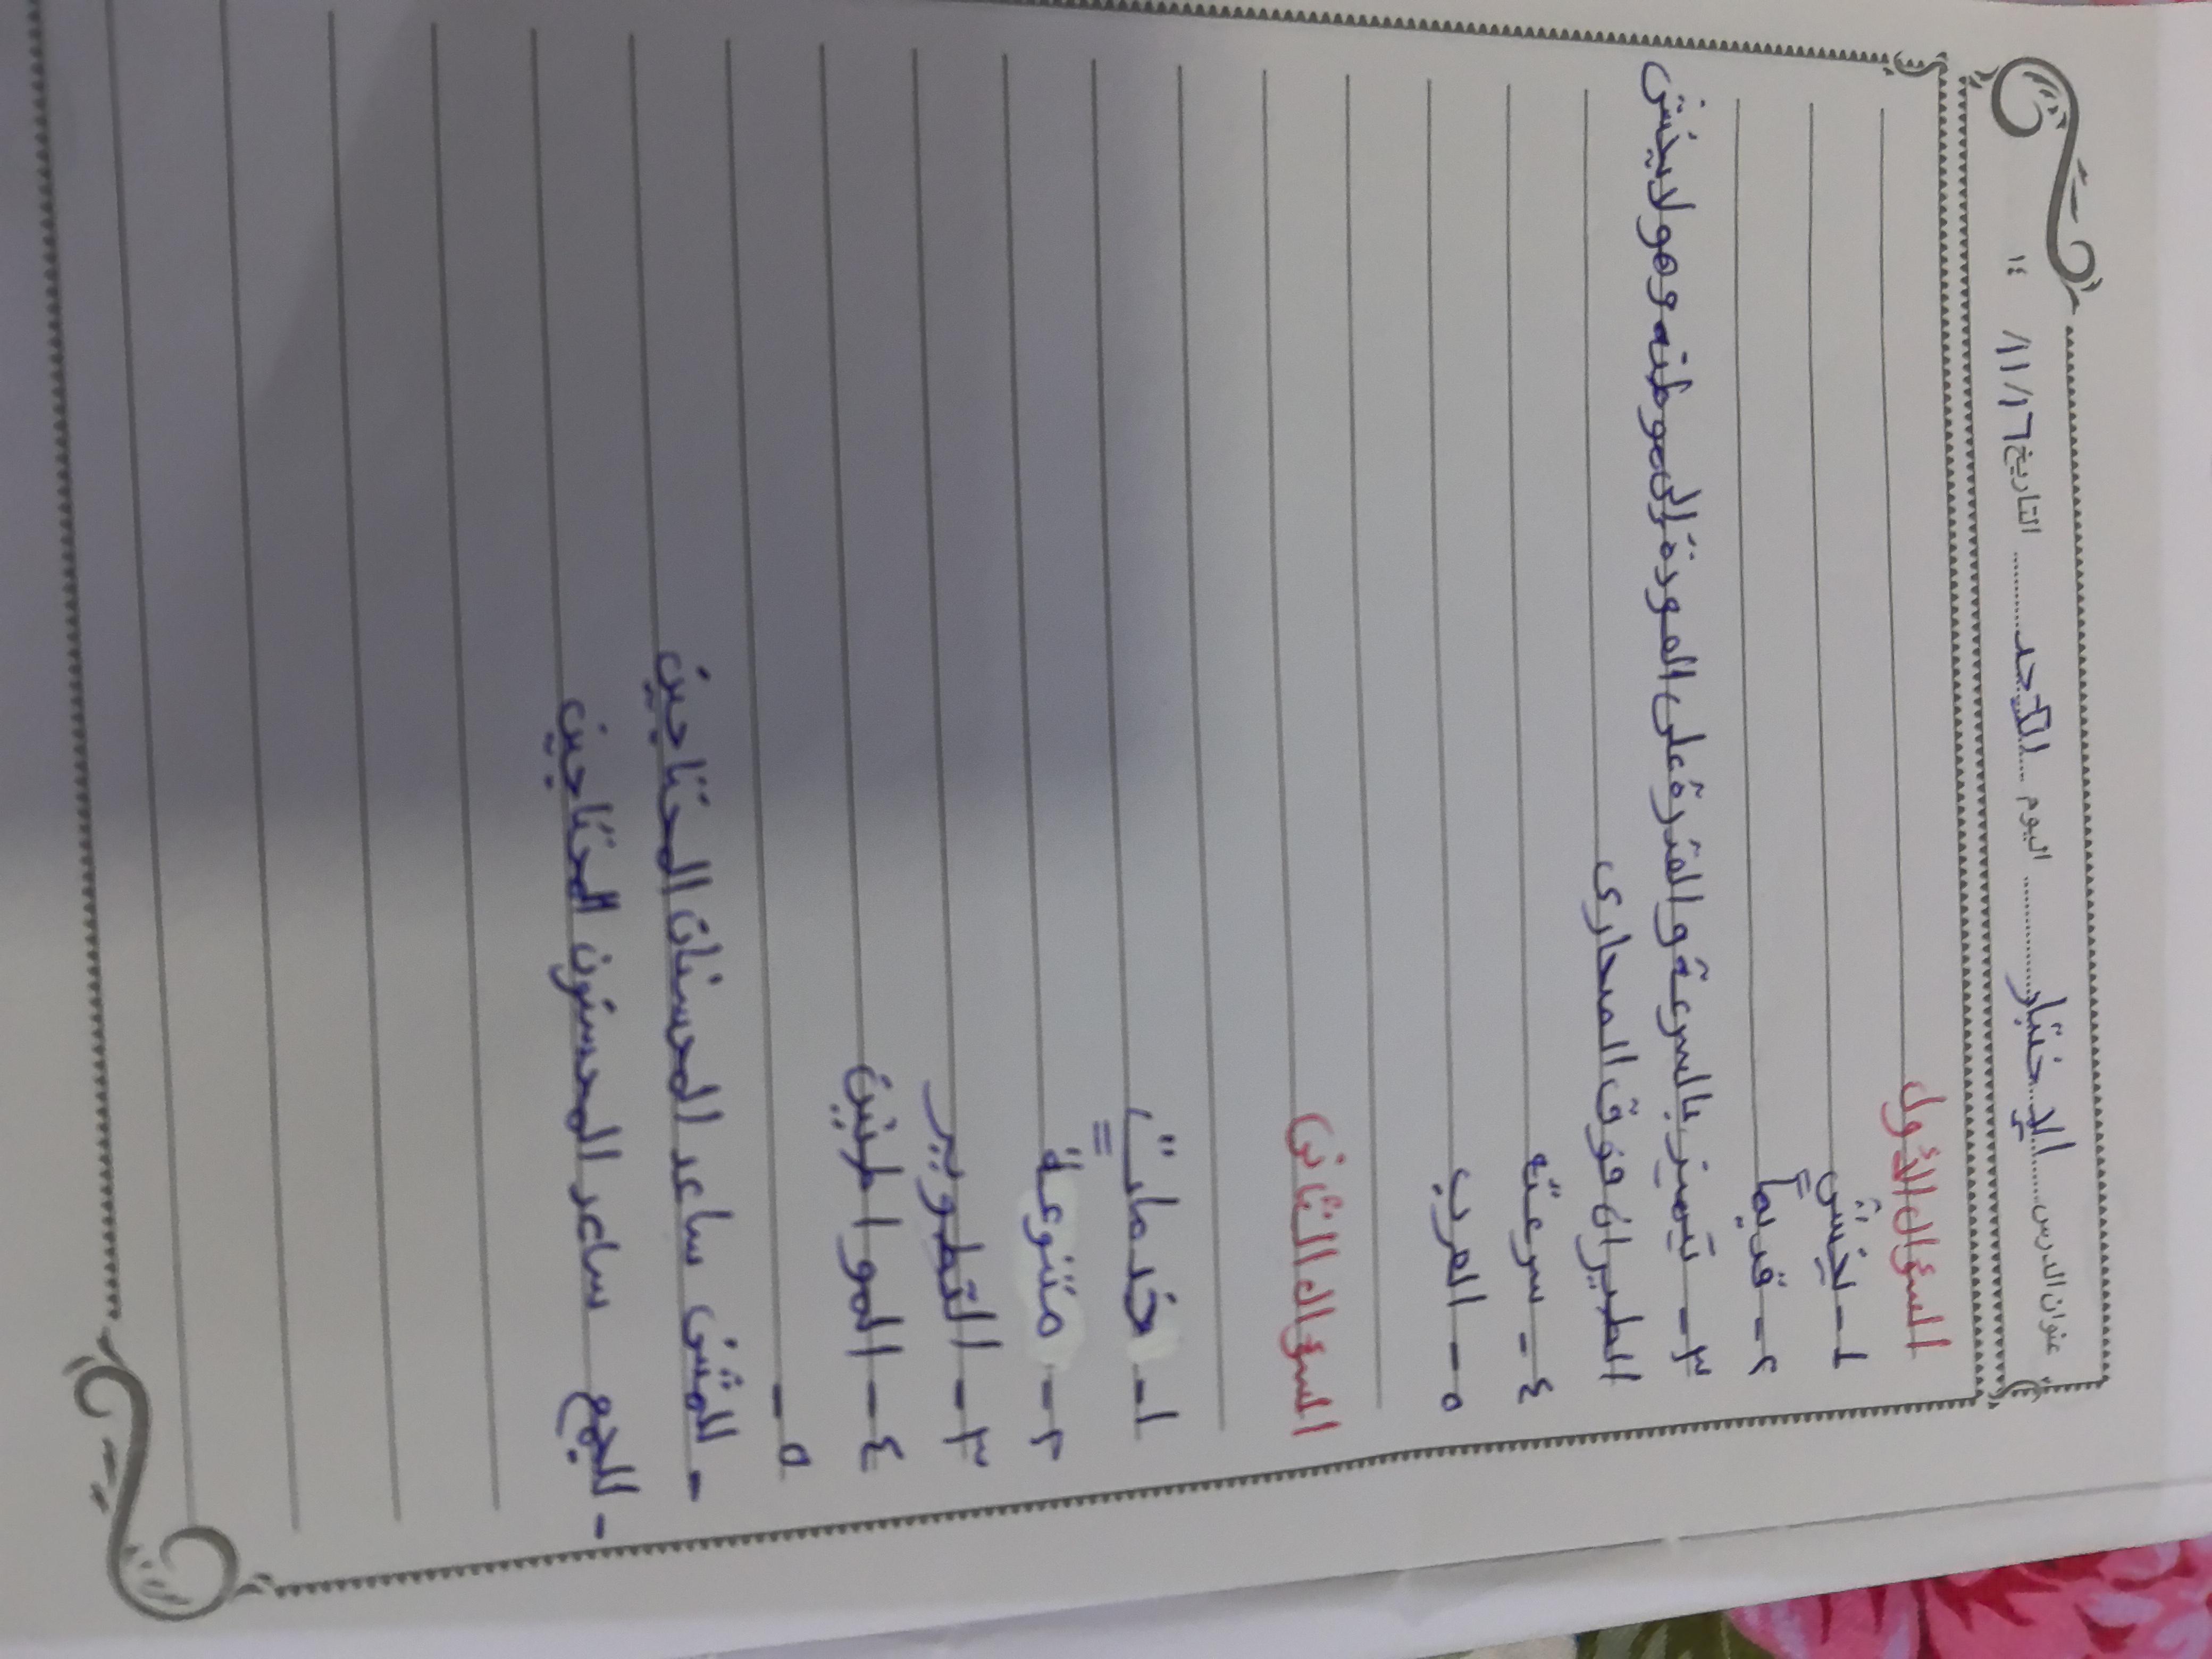 عنوان الدرس الإختبار اليوم الأحد التاريخ ١٦ / ١١ / ١٤
السؤال الأول
١ - يخشَ
٢ - قديماً
٣ - يتميز بالسرعة والقدرة على العودة إلى موطنه وهو لا يخشى
الطيران فوق الصحارى
٤ - سرعته
٥ - العرب
السؤال الثانى
١ - خدمات
٢ - متنوعة
٣ - التطوير
٤ - المواطنين
٥ -
- للمثنى ساعد المحسنان المحتاجين
- للجمع ساعد المحسنون المحتاجين